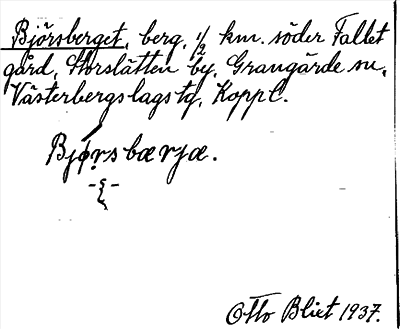 Björsberget, berg, 1/2 km. söder Fallet
gård, Storslätten by, Grangärde sn,
Västerbergslags tg, Kopp l.
Bjǿrsbærjæ.
Otto Blixt 1937.